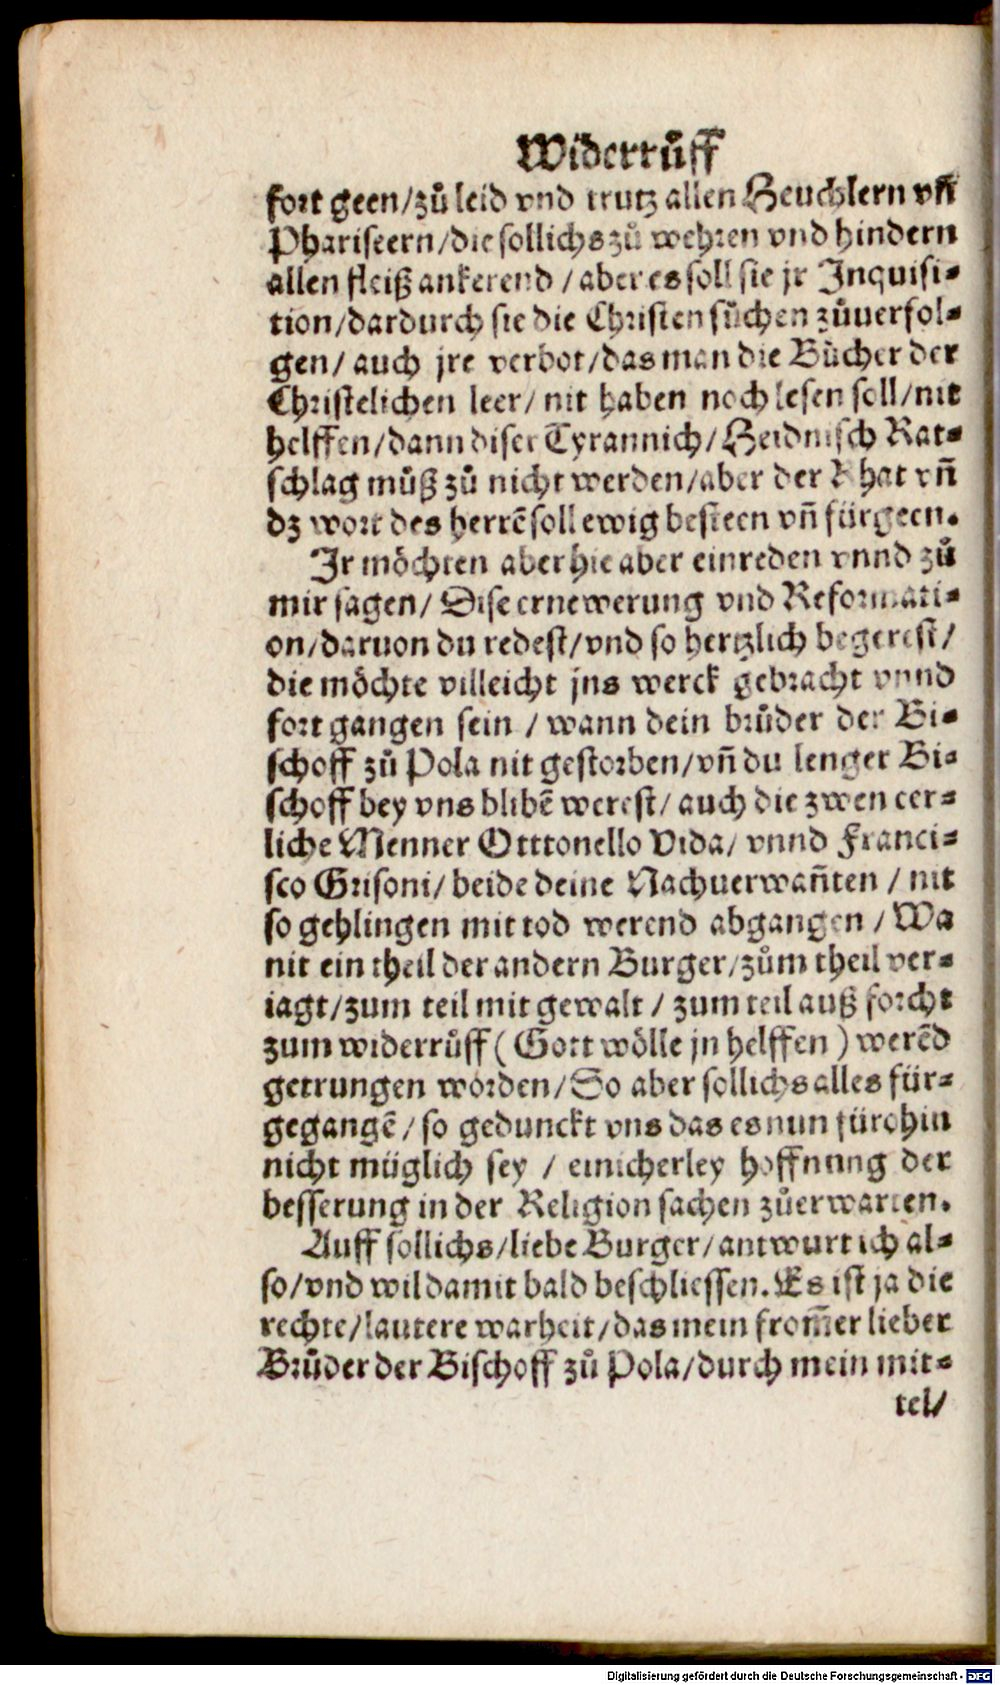 Widerrůff
fort geen/zů leid vnd trutz allen Heuchlern vñ
Phariseern/die sollichs zů wehren vnd hindern
allen fleiß ankerend / aber es soll sie jr Inquisi-
tion/dardurch sie die Christen sůchen zůuerfol-
gen/ auch jre verbot/das man die Bücher der
Christelichen leer/ nit haben noch lesen soll/nit
helffen/dann diser Tyrannich/Heidnisch Rat-
schlag můß zů nicht werden/aber der Rhat vñ
dz wort des herrē soll ewig besteen vñ fürgeen.
Jr möchten aber hie aber einreden vnnd zů
mir sagen/ Dise ernewerung vnd Reformati-
on/daruon du redest/vnd so hertzlich begerest/
die möchte villeicht jns werck gebracht vnnd
fort gangen sein / wann dein brůder der Bi-
schoff zů Pola nit gestorben/vñ du lenger Bi-
schoff bey vns blibē werest/ auch die zwen eer-
liche Menner Otttonello Vida/ vnnd Franci-
sco Grisoni/ beide deine Nachuerwañten / nit
so gehlingen mit tod werend abgangen / Wa
nit ein theil der andern Burger/zům theil ver-
iagt/zum teil mit gewalt / zum teil auß forcht
zum widerrůff ( Gott wölle jn helffen ) werēd
getrungen worden/So aber sollichs alles für-
gegangē / so gedunckt vns das es nun fürohin
nicht müglich sey / einicherley hoffnung der
besserung in der Religion sachen zůerwarten.
Auff sollichs/liebe Burger/antwurt ich al-
so/vnd wil damit bald beschliessen. Es ist ja die
rechte/lautere warheit/das mein from̃er lieber
Brůder der Bischoff zů Pola/durch mein mit-
tel/
Digitalisierung gefördert durch die Deutsche Forschungsgemeinschaft - DFG